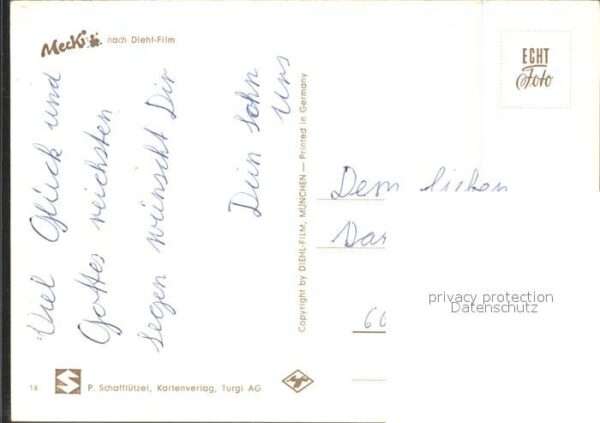 Mecki nach Diehl-Film
ECHT
Foto
Viel Glück und
Gottes reichsten
segen wünscht Dir
Dein Sohn
Urs
Copyright by DIEHL-FILM, MÜNCHEN — Printed in Germany
Dem lieben
privacy protection
Datenschutz
18 P. Schafflützel, Kartenverlag, Turgi AG